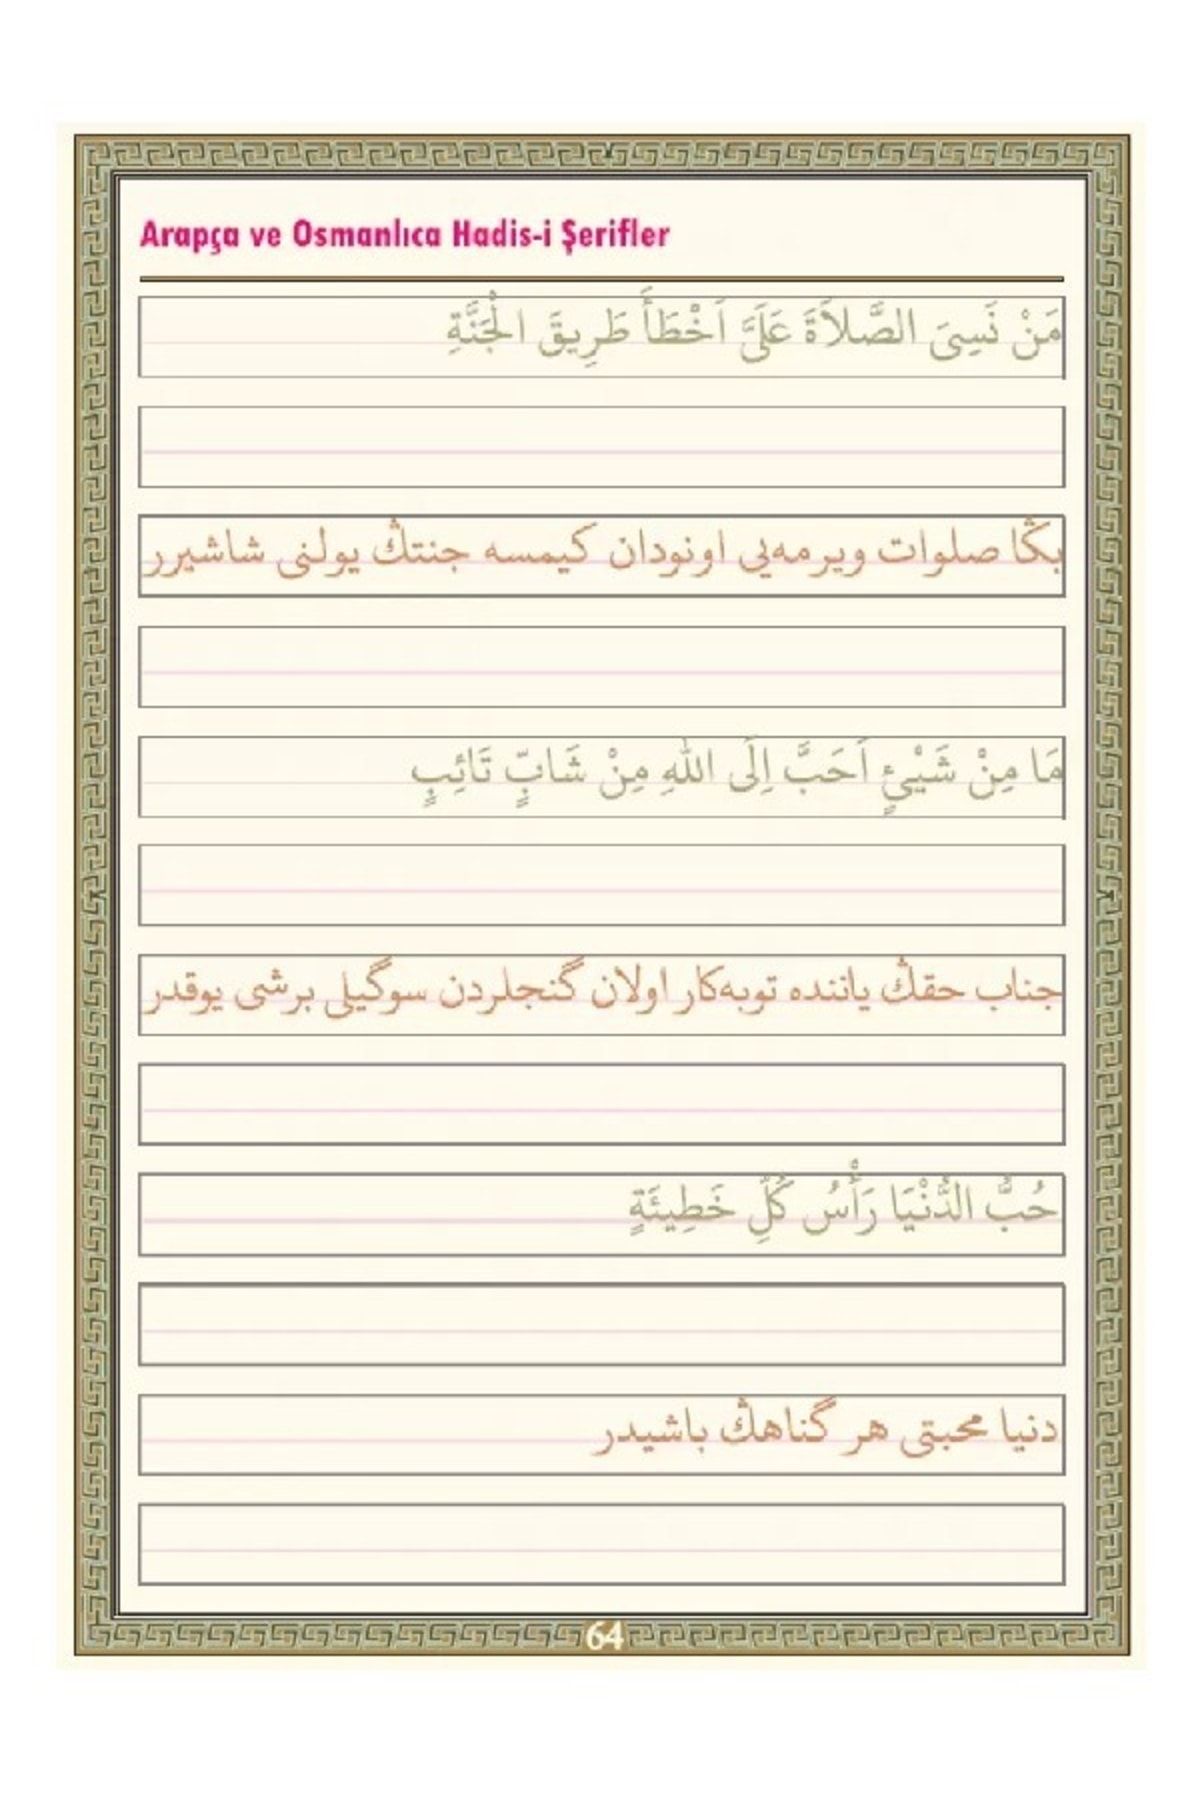 Arapça ve Osmanlıca Hadis-i Şerifler
مَنْ نَسِىَ الصَّلَاةَ عَلَىَّ اَخْطَأَ طَرِيقَ الْجَنَّةِ
بڭا صلوات ويرمه‌يى اونودان كيمسه جنتڭ يولنى شاشيرر
مَا مِنْ شَيْئٍ اَحَبَّ اِلَى اللهِ مِنْ شَابٍّ تَائِبٍ
جناب حقڭ ياننده توبه‌كار اولان گنجلردن سوگيلى برشى يوقدر
حُبُّ الدُّنْيَا رَأْسُ كُلِّ خَطِيئَةٍ
دنيا محبتى هر گناهڭ باشيدر
64